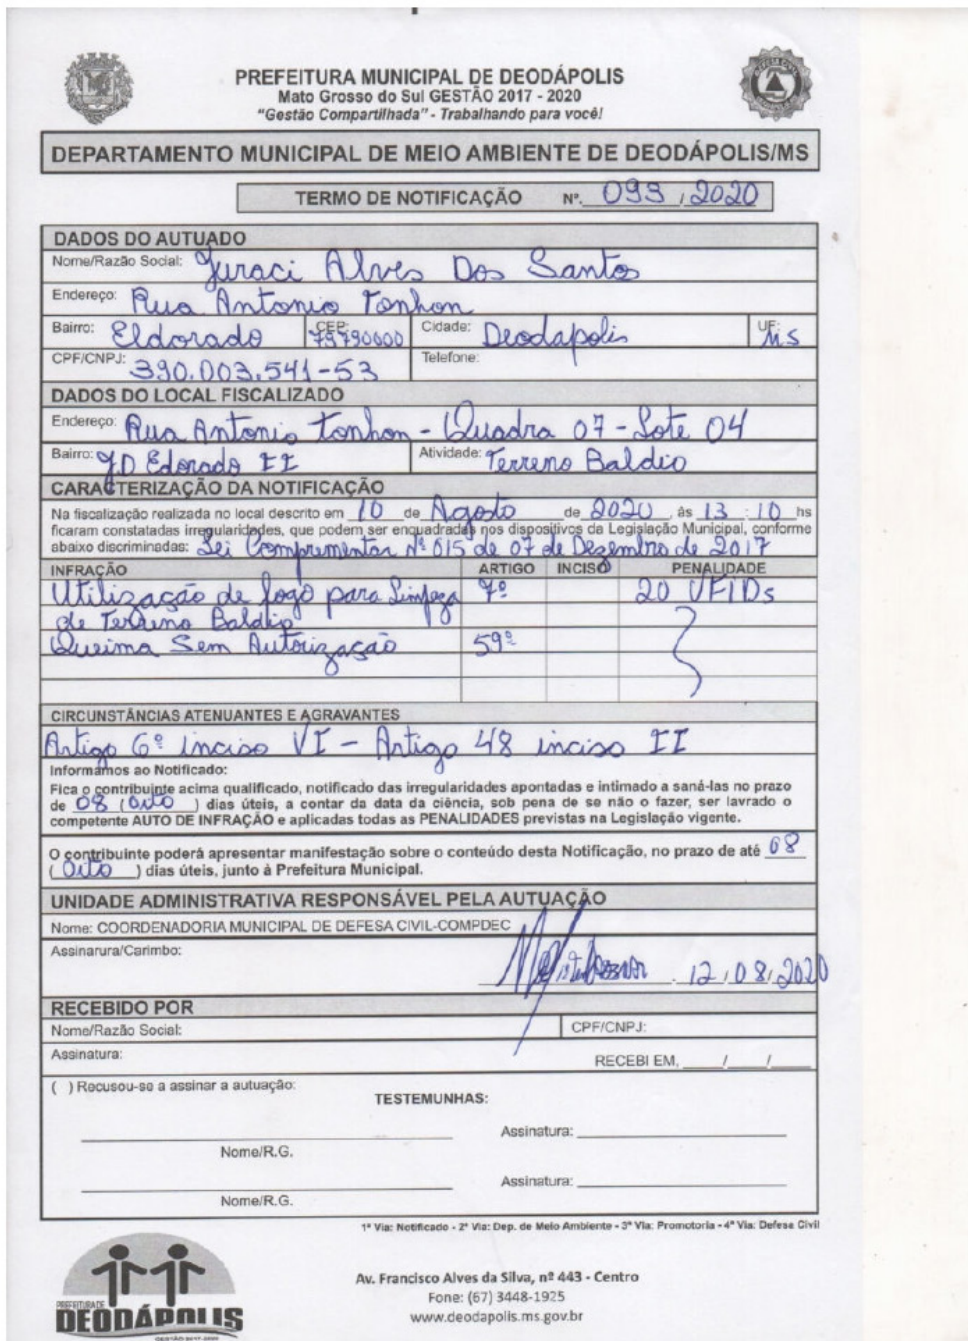 PREFEITURA MUNICIPAL DE DEODÁPOLIS
Mato Grosso do Sul GESTÃO 2017 - 2020
"Gestão Compartilhada" - Trabalhando para você!
DEPARTAMENTO MUNICIPAL DE MEIO AMBIENTE DE DEODÁPOLIS/MS
TERMO DE NOTIFICAÇÃO Nº. 093 / 2020
DADOS DO AUTUADO
Nome/Razão Social: Juraci Alves Dos Santos
Endereço: Rua Antonio Tonhon
Bairro: Eldorado CEP: 79790000 Cidade: Deodapolis UF: MS
CPF/CNPJ: 390.003.541-53 Telefone:
DADOS DO LOCAL FISCALIZADO
Endereço: Rua Antonio Tonhon - Quadra 07 - Lote 04
Bairro: JD Edorado II Atividade: Terreno Baldio
CARACTERIZAÇÃO DA NOTIFICAÇÃO
Na fiscalização realizada no local descrito em 10 de Agosto de 2020, às 13 : 10 hs
ficaram constatadas irregularidades, que podem ser enquadradas nos dispositivos da Legislação Municipal, conforme
abaixo discriminadas: Lei Comprementar Nº 015 de 07 de Dezembro de 2017
INFRAÇÃO ARTIGO INCISO PENALIDADE
Utilização de fogo para Limpeza 7º 20 UFIDs
de Terreno Baldio
Queima Sem Autorização 59º
CIRCUNSTÂNCIAS ATENUANTES E AGRAVANTES
Artigo 6º inciso VI - Artigo 48 inciso II
Informamos ao Notificado:
Fica o contribuinte acima qualificado, notificado das irregularidades apontadas e intimado a saná-las no prazo
de 08 (Oito) dias úteis, a contar da data da ciência, sob pena de se não o fazer, ser lavrado o
competente AUTO DE INFRAÇÃO e aplicadas todas as PENALIDADES previstas na Legislação vigente.
O contribuinte poderá apresentar manifestação sobre o conteúdo desta Notificação, no prazo de até 08
(Oito) dias úteis, junto à Prefeitura Municipal.
UNIDADE ADMINISTRATIVA RESPONSÁVEL PELA AUTUAÇÃO
Nome: COORDENADORIA MUNICIPAL DE DEFESA CIVIL-COMPDEC
Assinarura/Carimbo: 12/08/2020
RECEBIDO POR
Nome/Razão Social: CPF/CNPJ:
Assinatura: RECEBI EM, ____/____/____
( ) Recusou-se a assinar a autuação:
TESTEMUNHAS:
Assinatura:
Nome/R.G.
Assinatura:
Nome/R.G.
1ª Via: Notificado - 2ª Via: Dep. de Meio Ambiente - 3ª Via: Promotoria - 4ª Via: Defesa Civil
Av. Francisco Alves da Silva, nº 443 - Centro
Fone: (67) 3448-1925
www.deodapolis.ms.gov.br
PREFEITURA DE
DEODÁPOLIS
GESTÃO 2017-2020